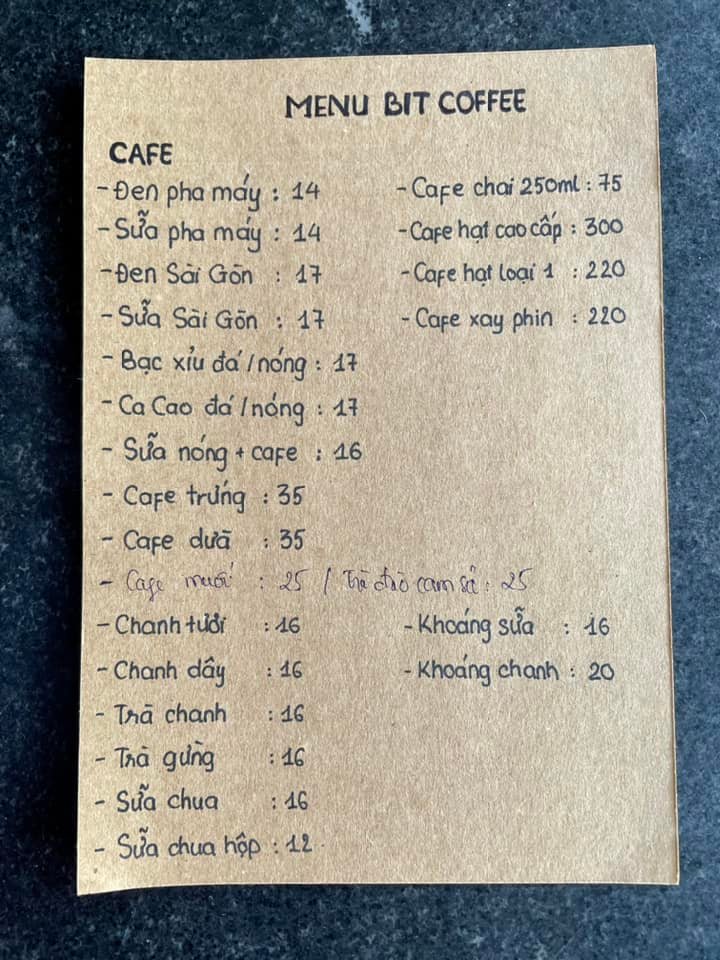 MENU BIT COFFEE
CAFE
- Đen pha máy : 14
- Sữa pha máy : 14
- Đen Sài Gòn : 17
- Sữa Sài Gòn : 17
- Bạc xỉu đá/nóng : 17
- Ca Cao đá/nóng : 17
- Sữa nóng + cafe : 16
- Cafe trứng : 35
- Cafe dừa : 35
- Cafe muối : 25 / Trà đào cam sả : 25
- Chanh tươi : 16
- Chanh dây : 16
- Trà chanh : 16
- Trà gừng : 16
- Sữa chua : 16
- Sữa chua hộp : 12
- Cafe chai 250ml : 75
- Cafe hạt cao cấp : 300
- Cafe hạt loại 1 : 220
- Cafe xay phin : 220
- Khoáng sữa : 16
- Khoáng chanh : 20